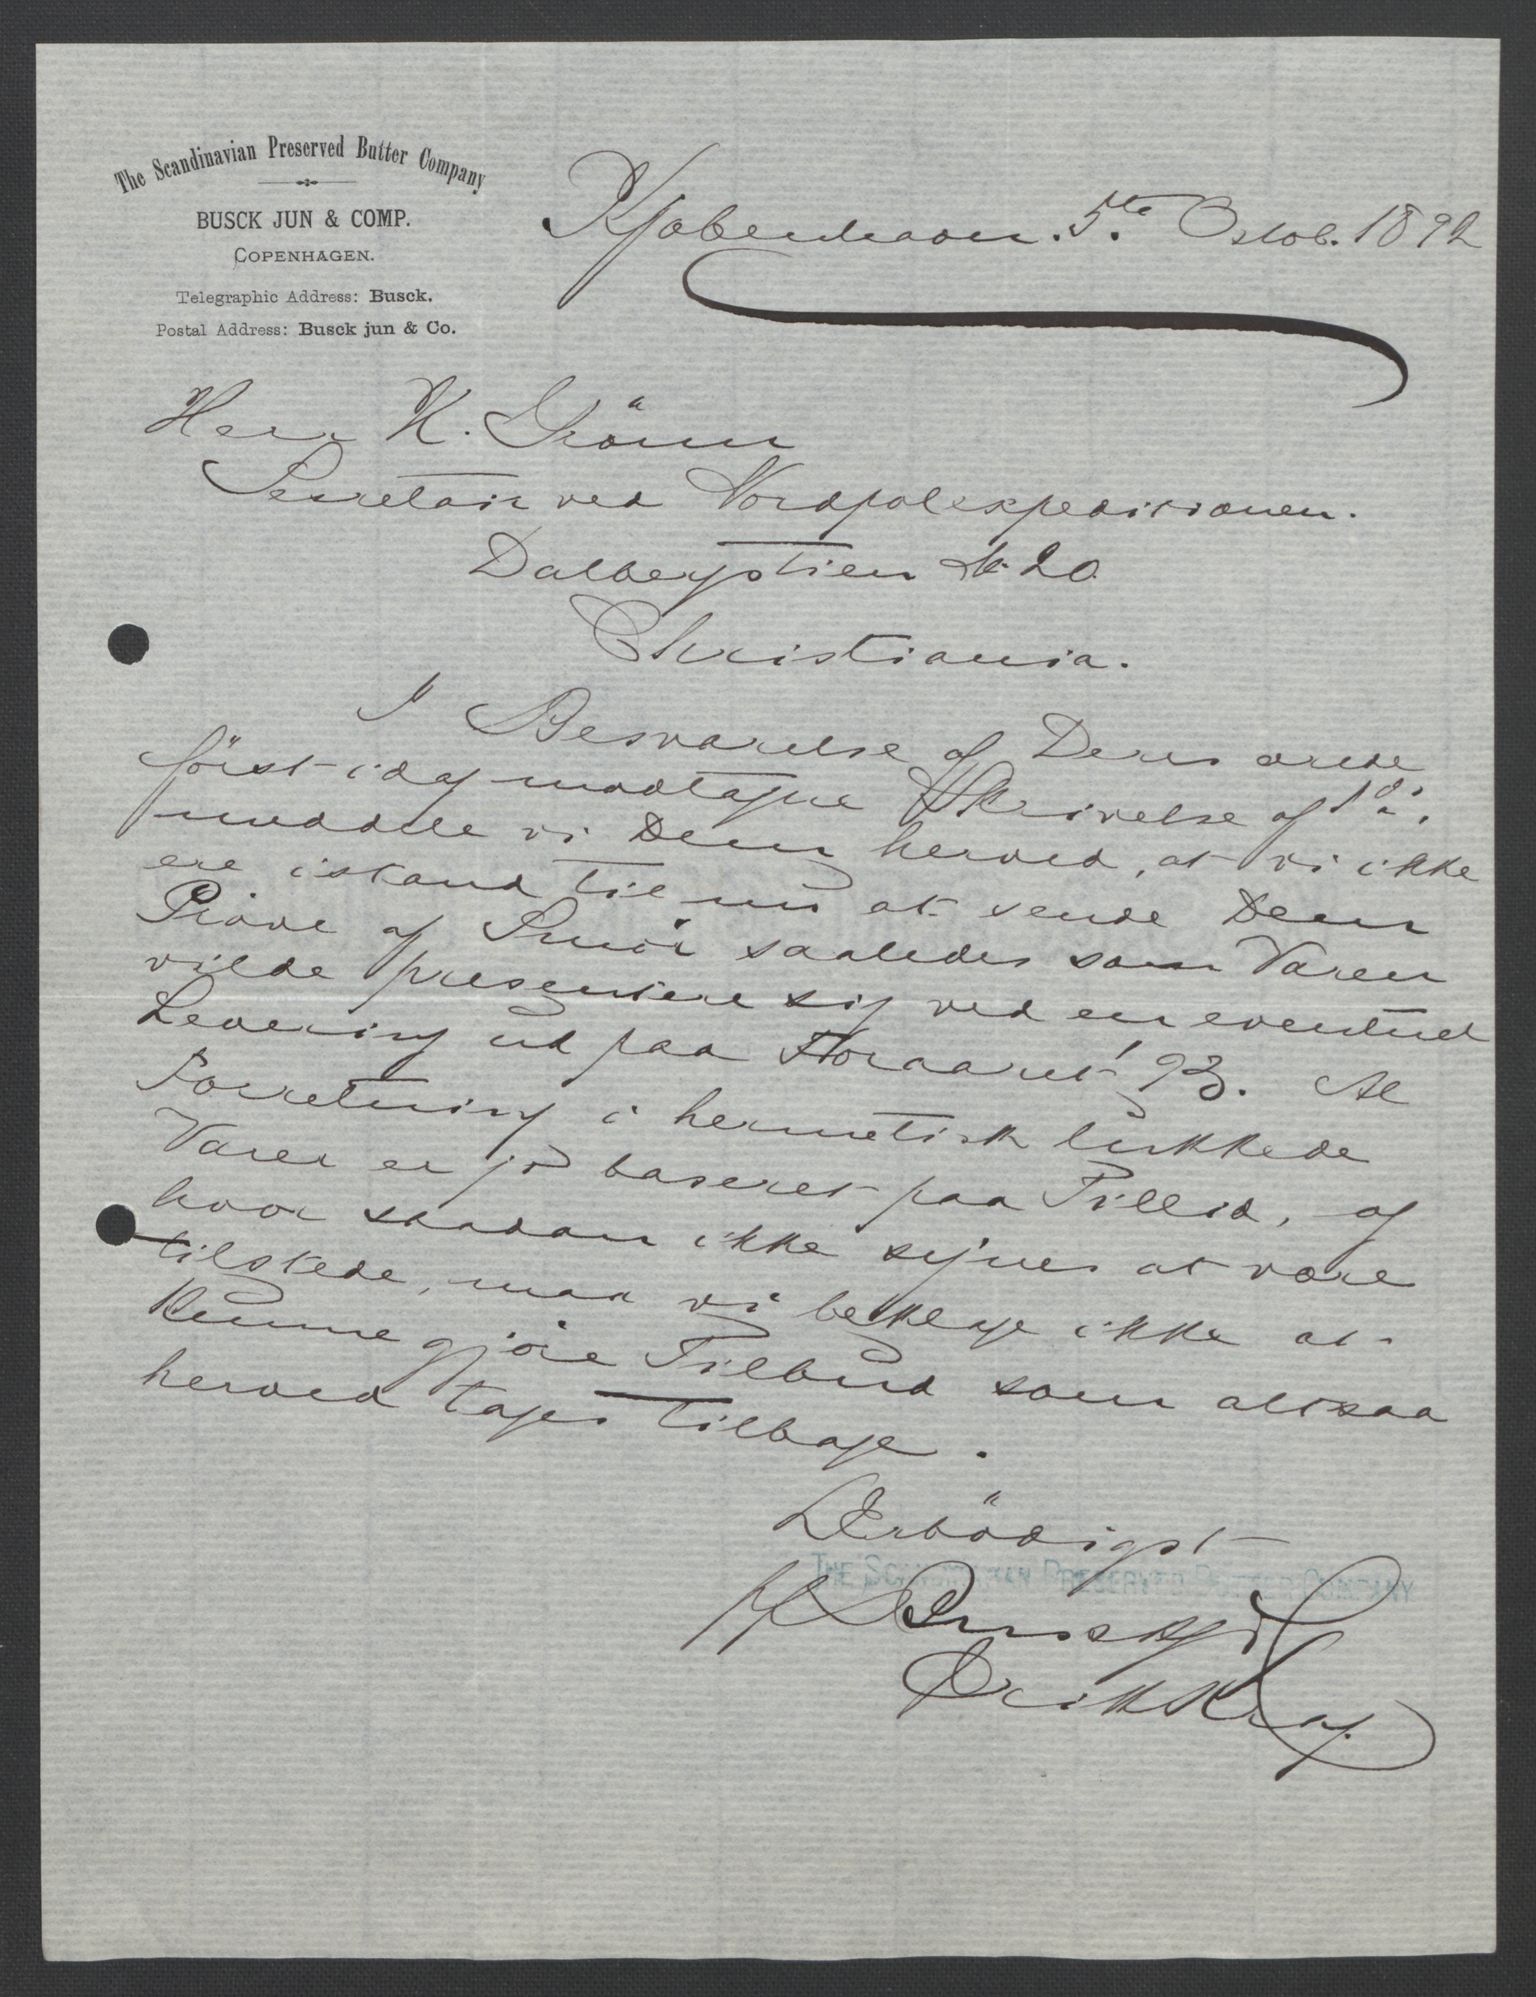 The Scandinavian Preserved Butter Company
BUSCK JUN & COMP.
COPENHAGEN.
Telegraphic Address: Busck.
Postal Address: Busck jun & Co.
Kjøbenhavn. 5te Octob. 1892
Herr K. Grönn
Secretair ved Nordpolexpeditionen.
Dalbergstien № 20
Christiania.
I Besvarelse af Deres ærede
först idag modtagne Skrivelse af 1ds.
meddele vi Dem herved, at vi ikke
ere istand til nu at sende Dem
Pröve af Smör saaledes som Varen
vilde presentere sig ved en eventuel
Levering ud paa Foraaret 93. Al
Forretning i hermetisk lukkede
Varer er jo baseret paa Tillid, og
hvor saadan ikke synes at være
tilstede, maa vi beklage ikke at
kunne gjöre Tilbud som altsaa
herved tages tilbage.
Ærbödigst
THE SCANDINAVIAN PRESERVED BUTTER COMPANY
Busck jr